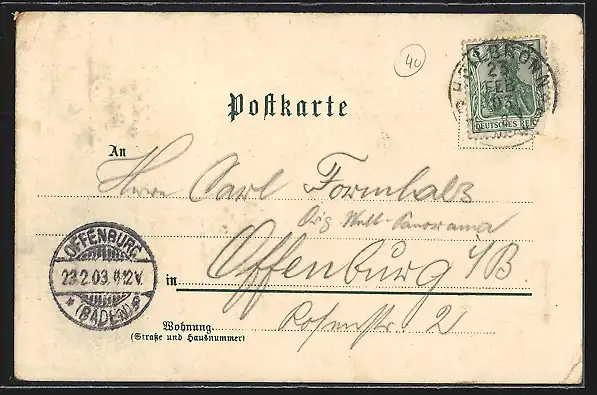 40
HEILBRONN
23
FEB
03
DEUTSCHES REICH
Postkarte
An
Herr Carl Formhals
Orig Welt-Panorama
in Offenburg i/B.
Wohnung Rosenstr. 2
(Straße und Hausnummer)
OFFENBURG
23.2.03. 12V.
* (BADEN)